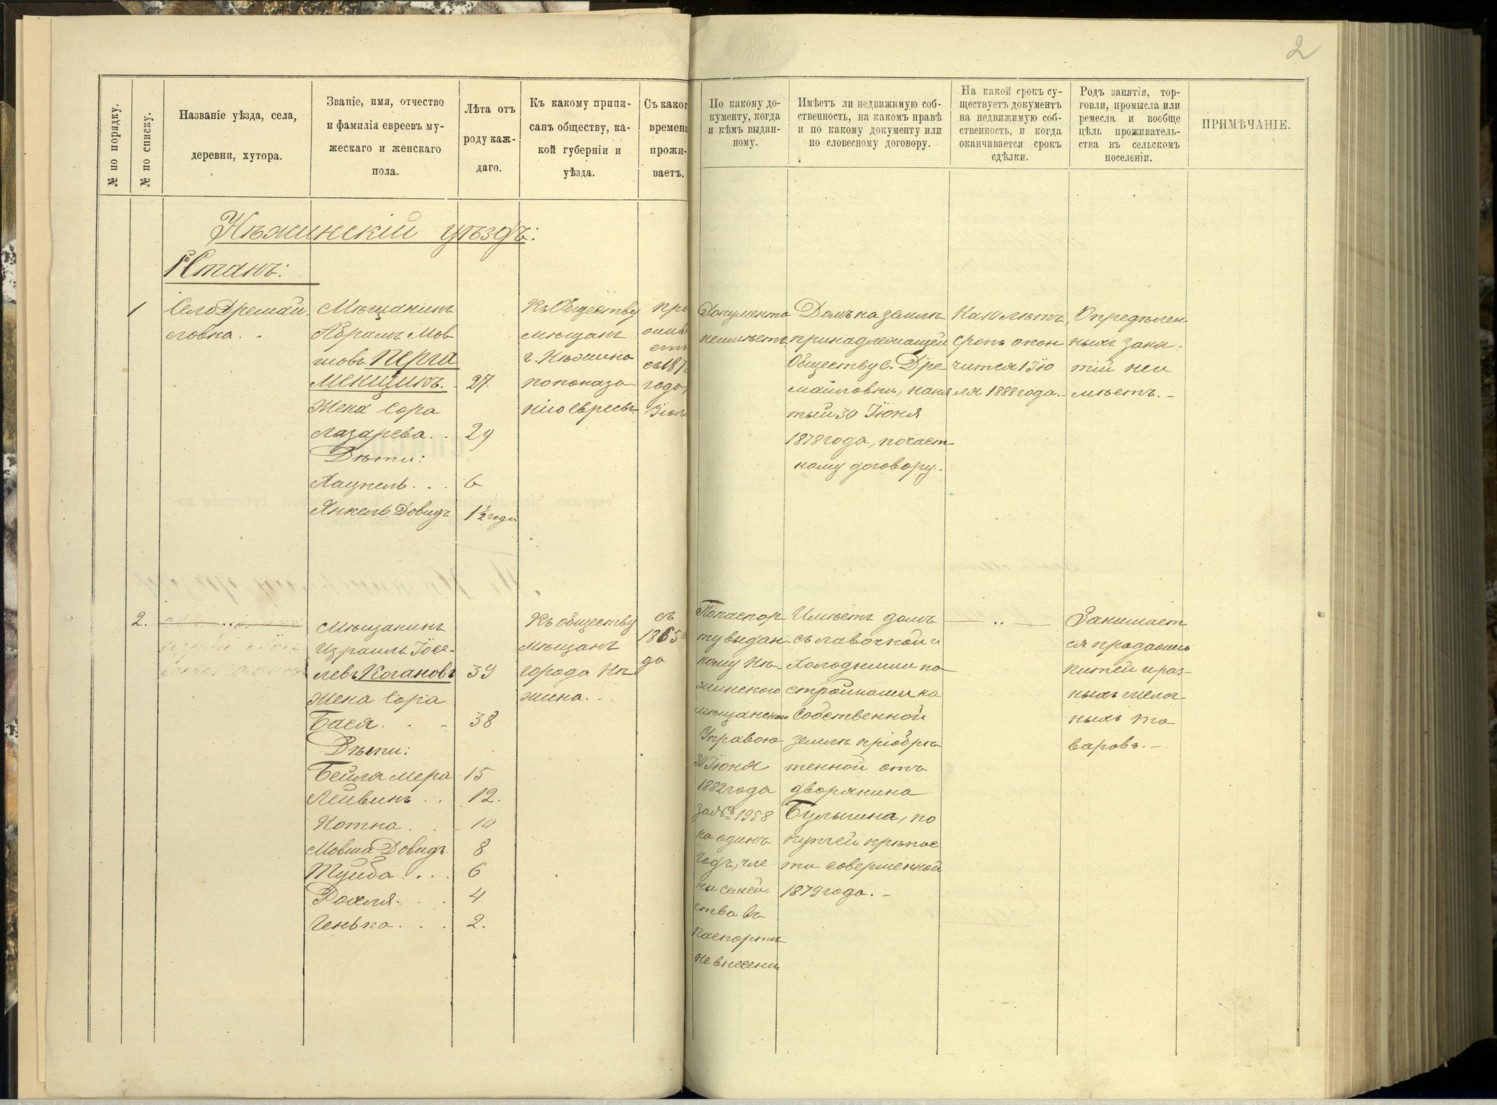 2
№ по порядку.
№ по списку.
Названіе уѣзда, села,
деревни, хутора.
Званіе, имя, отчество
и фамилія евреевъ му-
жескаго и женскаго
пола.
Лѣта отъ
роду каж-
даго.
Къ какому припи-
санъ обществу, ка-
кой губерніи и
уѣзда.
Съ каког
времени
прожи-
ваетъ.
По какому до-
кументу, когда
и кѣмъ выдан-
ному.
Имѣетъ ли недвижимую соб-
ственность, на какомъ правѣ
и по какому документу или
по словесному договору.
На какой срокъ су-
ществуетъ документъ
на недвижимую соб-
ственность, и когда
оканчивается срокъ
сдѣлки.
Родъ занятія, тор-
говли, промысла или
ремесла и вообще
цѣль проживатель-
ства въ сельскомъ
поселеніи.
ПРИМѢЧАНІЕ.
Нѣжинскій уѣздъ:
1 Станъ:
1
Село Дремай
ловка . .
Мѣщанинъ
Абрамъ Мов
шовъ Перга
менщикъ .
Жена Сора
Лазарева . .
Дѣти:
Хацкель . . .
Янкель Довидъ
27
29
6
1½ года
Къ Обществу
мѣщанъ
г. Нѣжина
по показа
нію Евреевъ
Документа
неимѣетъ
Домъ на землѣ
принадлежащей
Обществу С. Дре
майловки, наня
тый 30 Іюня
1878 года, по част
ному договору.
На 10 лѣтъ,
Срокъ окон
чится 1 Ію
ля 1888 года. -
Опредѣлен
ныхъ заня-
тій неи
мѣетъ. -
2.
— „ —
Мѣщанинъ
Израиль Іосе-
левъ Когановъ
Жена Сора
Бася . . -
Дѣти:
Бейля Мера
Лейвикъ . .
Нотка . .
Мовша Довидъ
. . .
Рохля . . .
Генька . . .
39
38
15
12.
10
8
6
4
2.
Къ обществу
мѣщанъ
города Нѣ
жина . .
съ
1865
да
Попаспор
ту выдан
ному Нѣ
жинскою
мѣщанскою
Управою
Іюня
1882 года
за № 1958
на одинъ
годъ, чле
ны семей
ства въ
паспортъ
не внесены
Имѣетъ домъ
съ лавочкой и
Холодными по
стройками на
Собственной
землѣ пріобрѣ
тенной отъ
дворянина
Булыгина, по
купчей крѣпос
ти совершенной
1879 года. -
— „ —
Занимает
ся продажею
питей и раз-
ныхъ мелоч
ныхъ то
варовъ. -